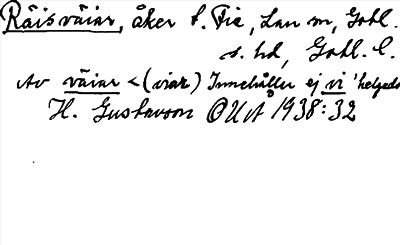 Räisväiar, åker t. Fie, Lau sn, Gotl.
s. hd, Gotl. l.
Av väiar < (viar) Innehåller ej vi 'helgedo
H. Gustavson OUÅ 1938:32